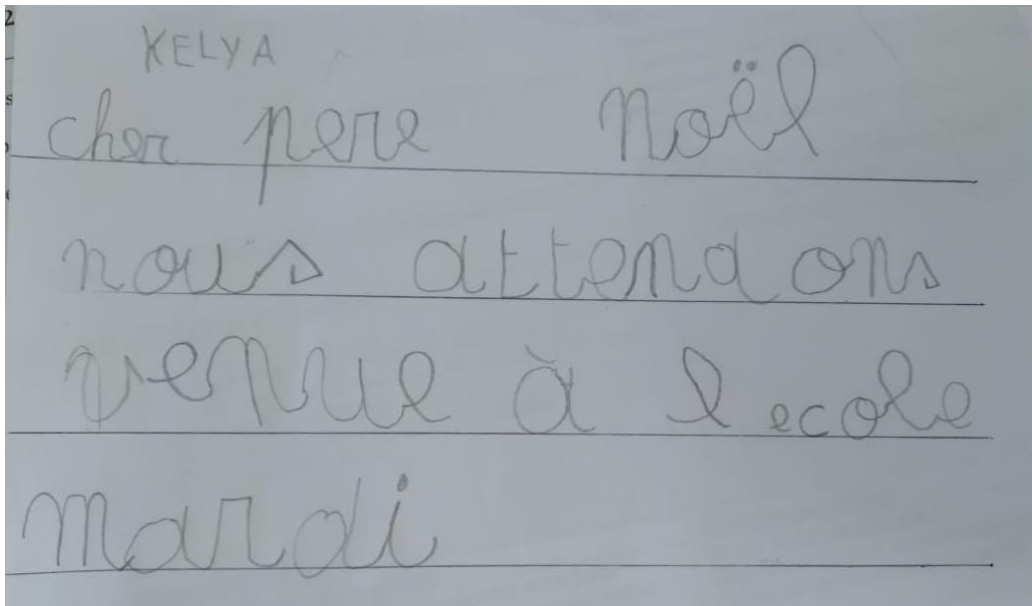 KELYA
cher pere Noël
nous attendons
venue à l ecole
mardi